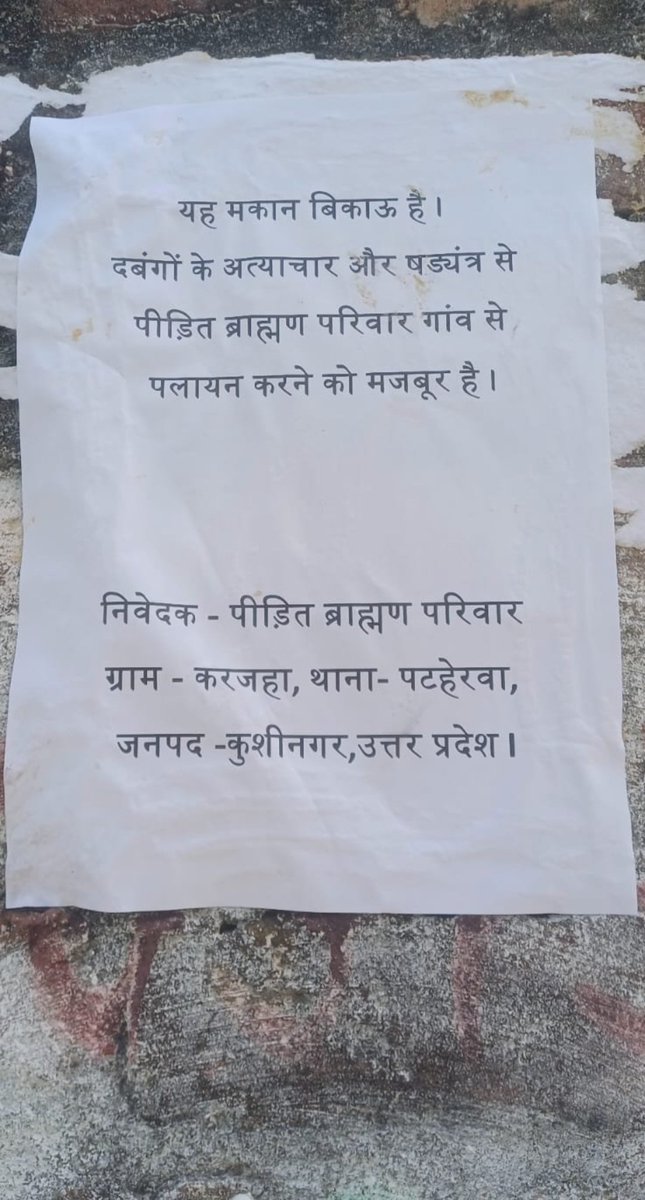 यह मकान बिकाऊ है।
दबंगों के अत्याचार और षड्यंत्र से
पीड़ित ब्राह्मण परिवार गांव से
पलायन करने को मजबूर है।
निवेदक - पीड़ित ब्राह्मण परिवार
ग्राम - करजहा, थाना- पटहेरवा,
जनपद -कुशीनगर,उत्तर प्रदेश।